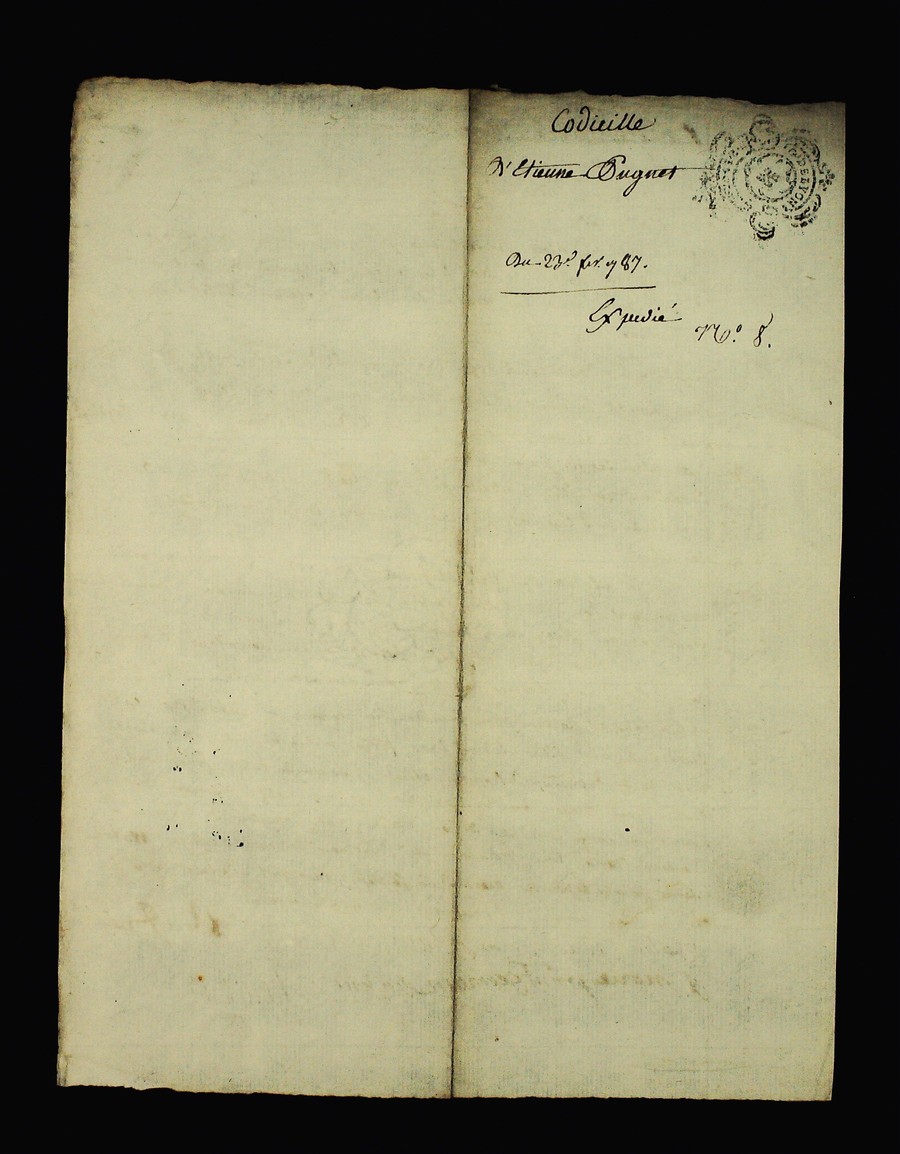 Codicille
d'Etienne Pugnet
DE LYON
Du 23e fer. 987.
Expedié
No. 8.